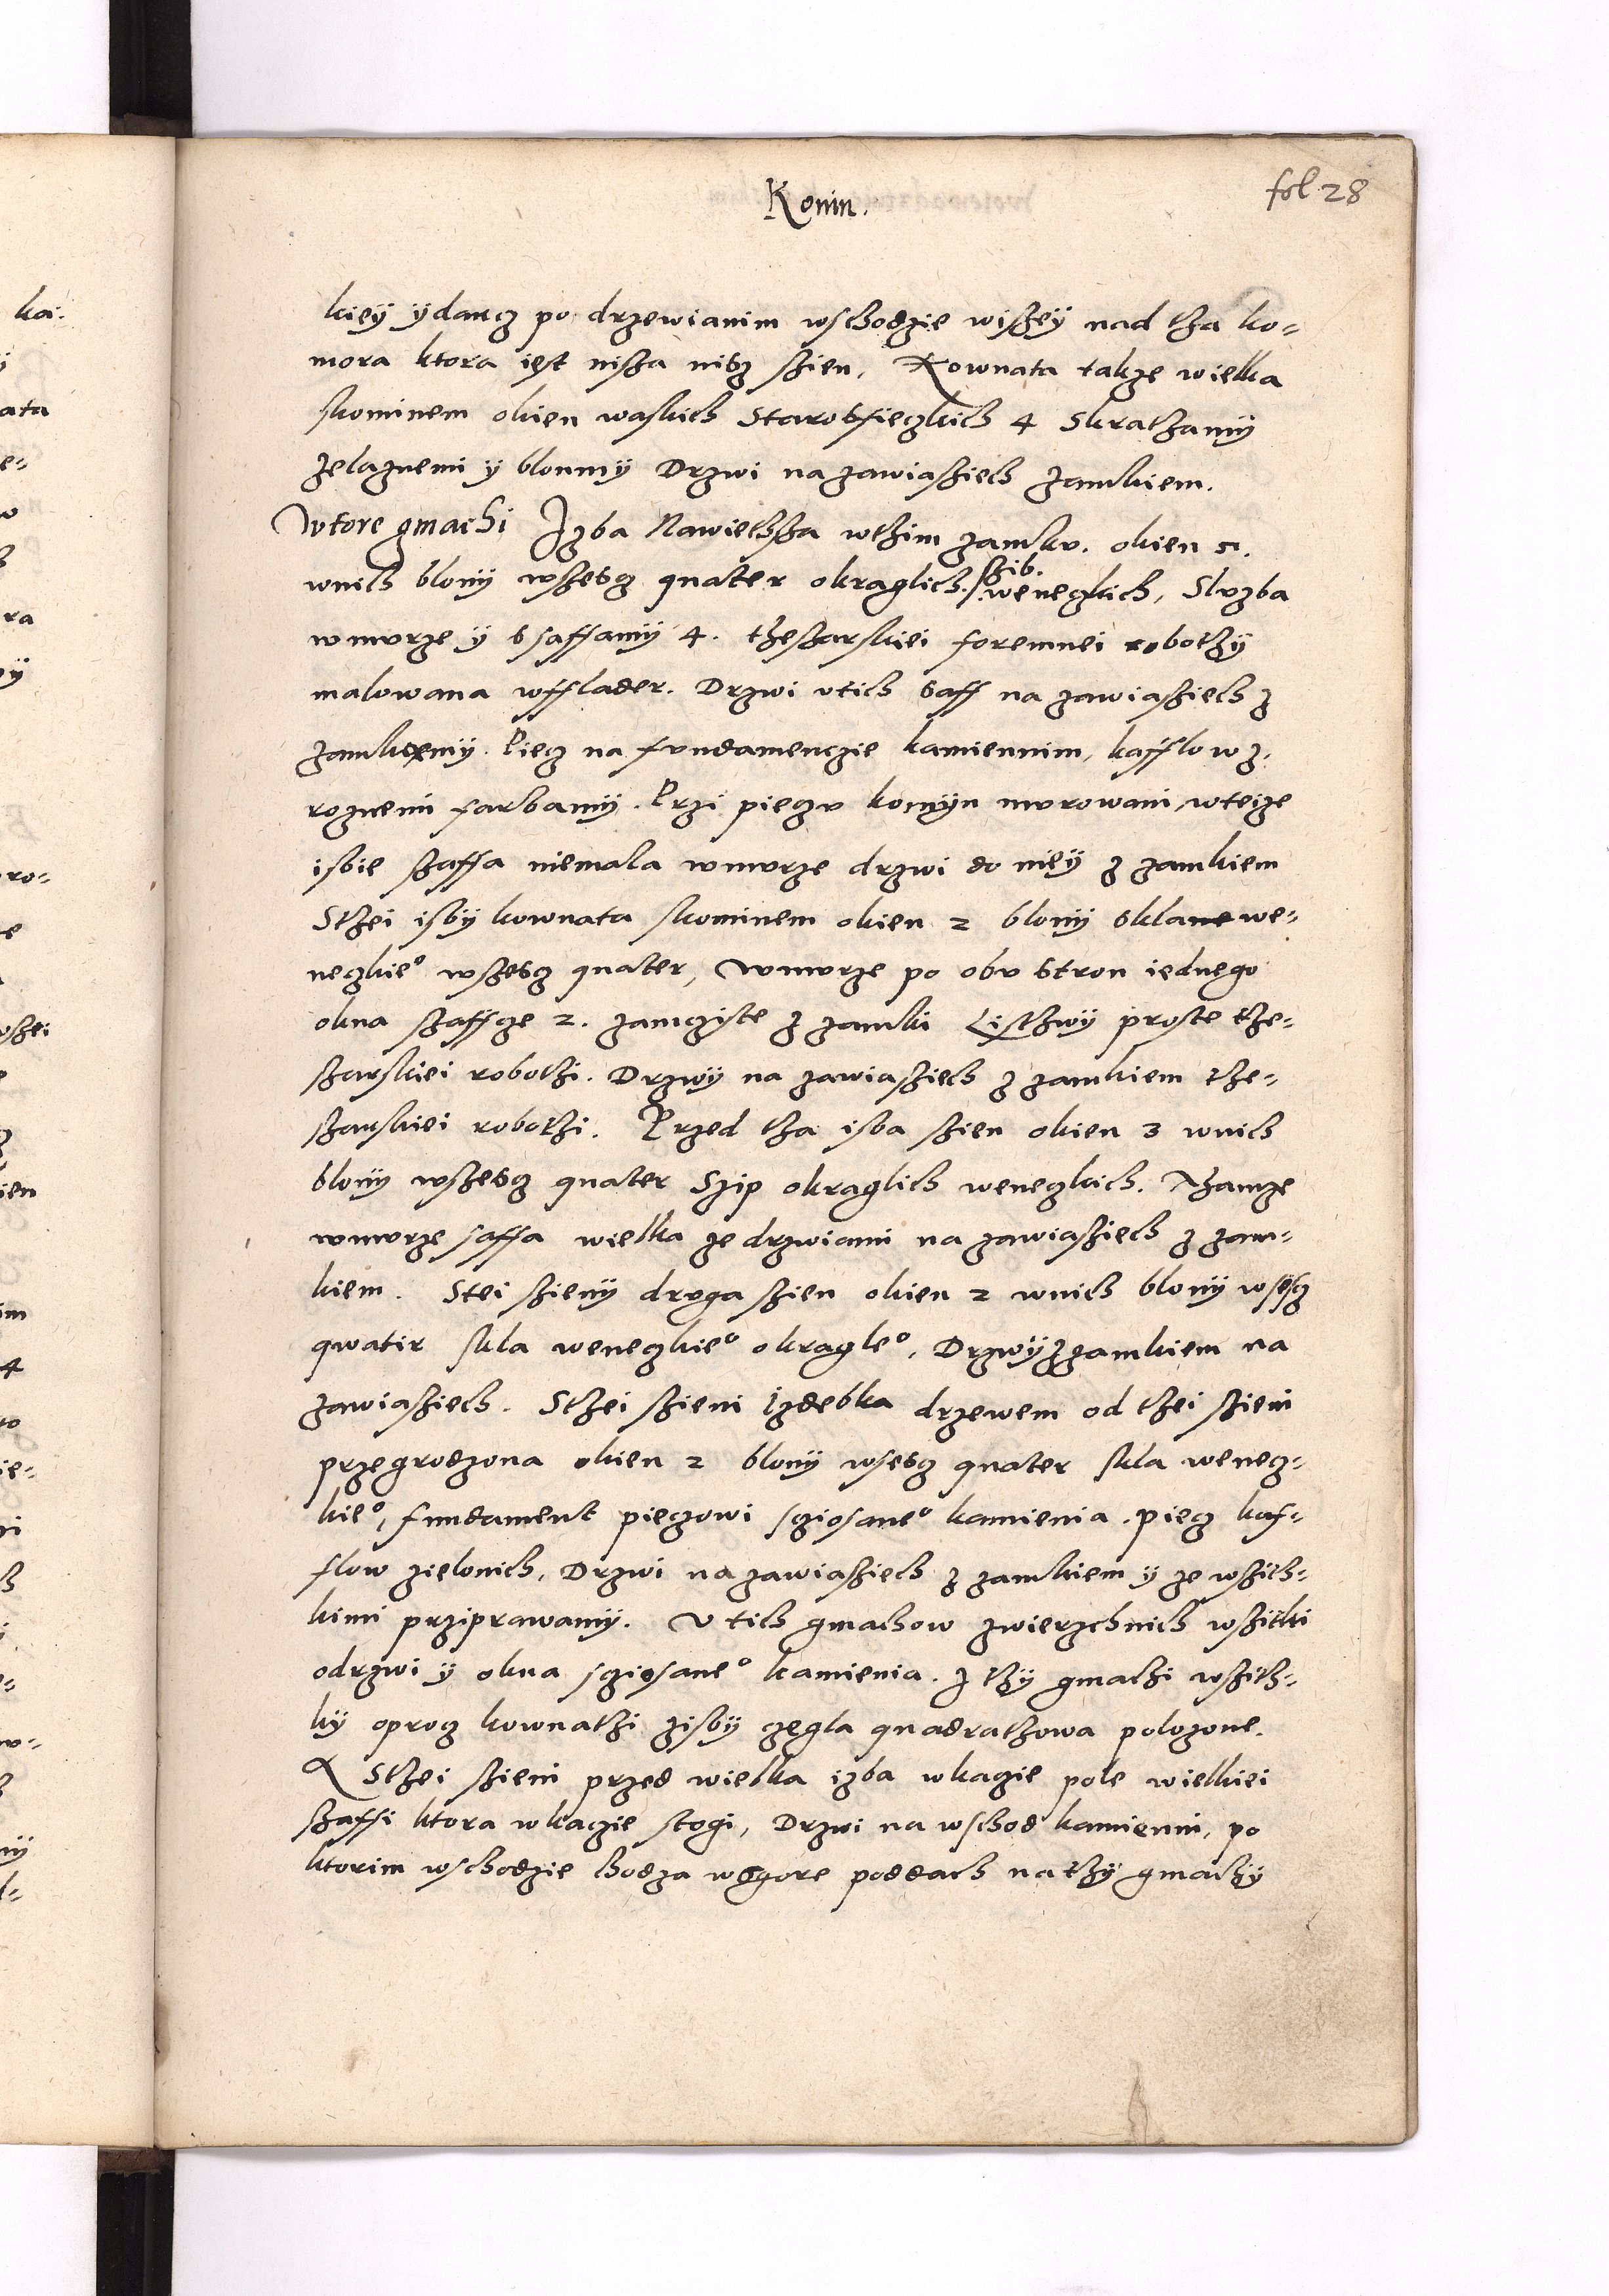 Konin.
fol. 28
kieÿ ÿdancz po drzewianim wschodzie wiszeÿ nad tha ko-
mora ktora iest nisza nisz szien. Kownata takze wielka
skominem okien waskich Staroswieczkich 4 Skrathamÿ
zelaznemi y blonmÿ Drzwi na zawiasziech zamkiem.
Wtore gmachi Izba Nawiethsza wthim zamku. okien 5.
wnich blonÿ wszescz quater okraglich szib. weneczkich, Sluzba
wmurze y ssaffamÿ 4. thesarskiei foremnei robothÿ
malowana wfflader. Drzwi utich saff na zawiasziech z
zamkemÿ. Piecz na fundamenczie kamiennim, kafflow z
roznemi farbamÿ. Przi pieczu komÿn murowani, wteize
isbie szaffa niemala wmurze drzwi do nieÿ z zamkiem
Sthei isbÿ kownata skominem okien 2 blonÿ sklane we-
neczkieº wszescz quater, Wmurze po obu stron iednego
okna szaffze 2. zamcziste z zamki Listhwÿ proste the-
sarskiei robothi. Drzwÿ na zawiasziech z zamkiem the-
sarskiei robothi. Przed tha isba szien okien 3 wnich
blonÿ wszescz quater Szip okraglich weneczkich. Thamze
wmurze saffa wielka ze drzwiami na zawiasziech z zam-
kiem. Stei szienÿ druga szien okien 2 wnich blonÿ wsescz
qwatir skla weneczkieº okragleº, Drzwÿ z zamkiem na
zawiasziech. Sthei szieni Izdebka drzewem od thei szieni
przegrodzona okien 2 blonÿ wsescz quater skla wenecz-
kieº, fundament pieczowi scziosaneº kamienia. piecz kaf-
flow zielonich, Drzwi na zawiasziech z zamkiem y ze wszith-
kimi prziprawamÿ. U tich gmachow zwierzchnich wszitki
odrzwi y okna scziosaneº kamienia. I thÿ gmachi wszith-
kÿ oprocz kownathi zisbÿ czegla quadrathowa polozone.
Sthei szieni przed wielka izba wkaczie pole wielkiei
szaffi ktora wkaczie stogi, Drzwi na wschod kamienni, po
ktorim wschodzie chodza wgore poddach na thÿ gmachÿ